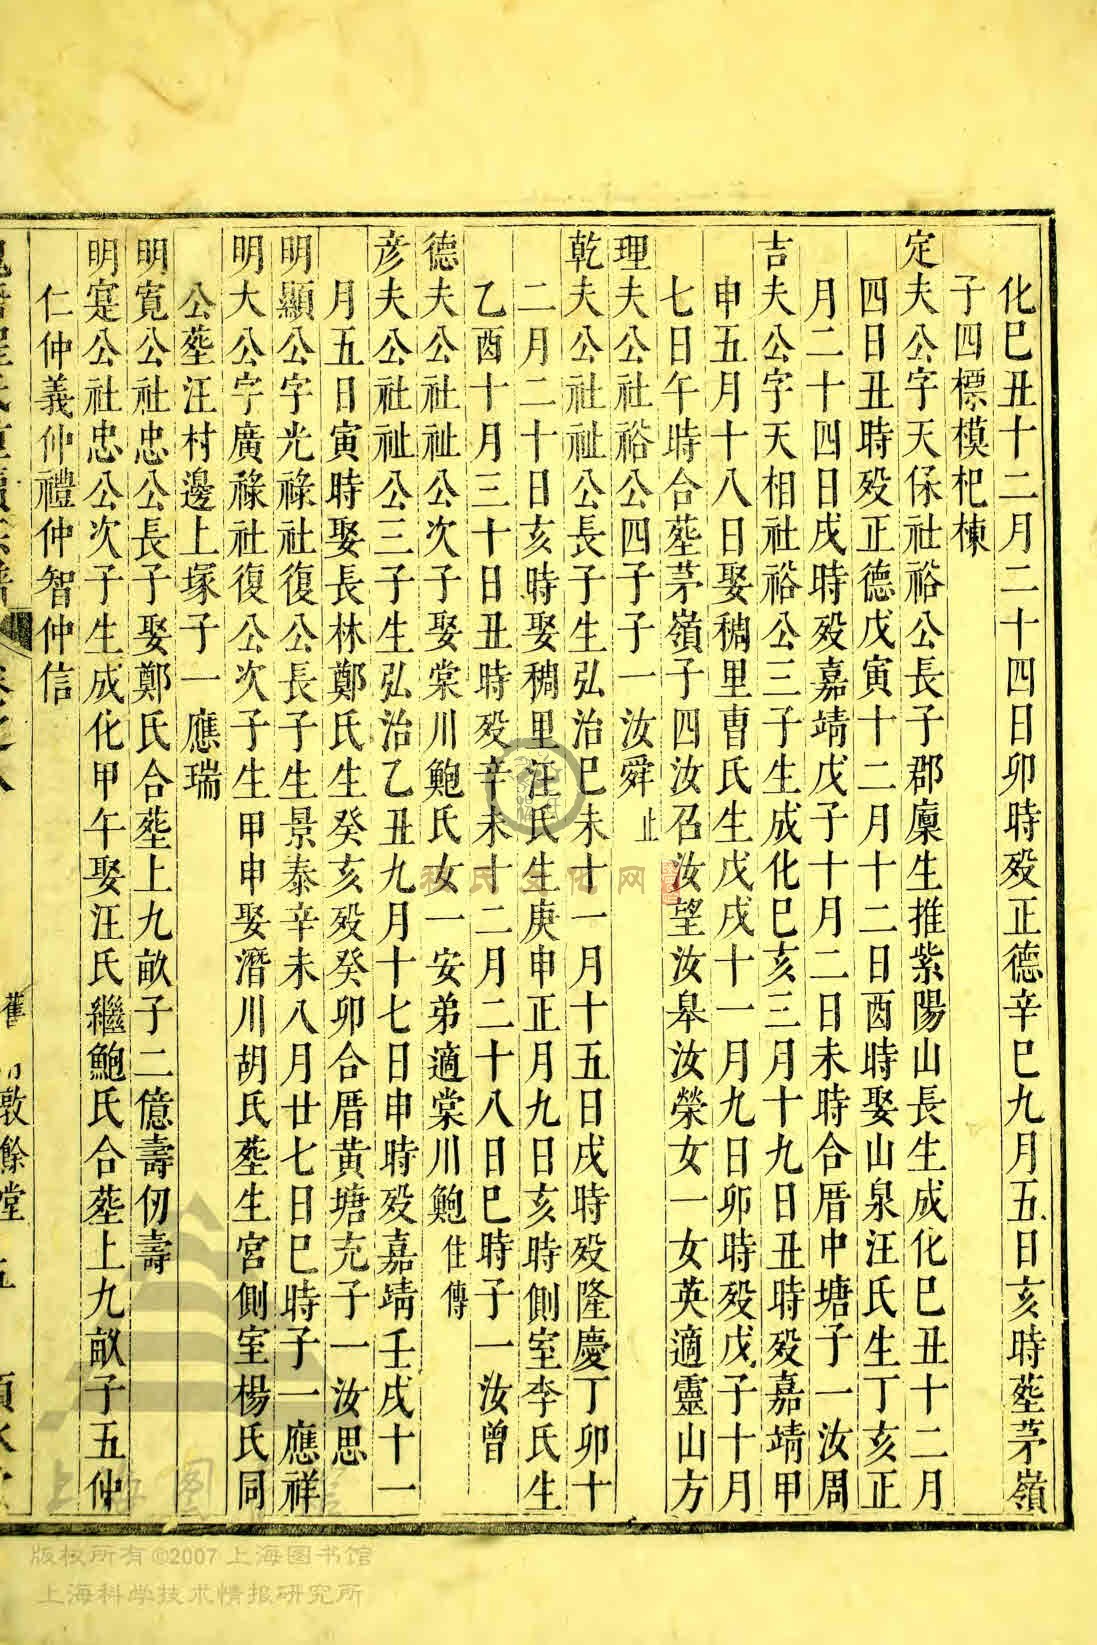 化巳丑十二月二十四日卯時殁正德辛巳九月五日亥時塟茅嶺
子四標模杞棟
定夫公字天保社裕公長子郡廩生推紫陽山長生成化巳丑十二月
四日丑時殁正德戊寅十二月十二日酉時娶山泉汪氏生丁亥正
月二十四日戌時殁嘉靖戊子十月二日未時合厝中塘子一汝周
吉夫公字天相社裕公三子生成化巳亥三月十九日丑時殁嘉靖甲
申五月十八日娶稠里曹氏生戊戌十一月九日卯時殁戊子十月
七日午時合塟茅嶺子四汝召汝望汝皋汝榮女一女英適靈山方
理夫公社裕公四子子一汝舜止
乾夫公社祉公長子生弘治巳未十一月十五日戌時殁隆慶丁卯十
二月二十日亥時娶稠里汪氏生庚申正月九日亥時側室李氏生
乙酉十月三十日丑時殁辛未十二月二十八日巳時子一汝曾
德夫公社祉公次子娶棠川鮑氏女一安弟適棠川鮑住傳
彦夫公社祉公三子生弘治乙丑九月十七日申時殁嘉靖壬戌十一
月五日寅時娶長林鄭氏生癸亥殁癸卯合厝黄塘充子一汝思
明顯公字光祿社復公長子生景泰辛未八月廿七日巳時子一應祥
明大公字廣祿社復公次子生甲申娶潛川胡氏塟生宮側室楊氏同
公塟汪村邊上塚子一應瑞
明寬公社忠公長子娶鄭氏合塟上九畝子二億壽仞壽
明寔公社忠公次子生成化甲午娶汪氏繼鮑氏合塟上九畝子五仲
仁仲義仲禮仲智仲信
舊 敦餘堂
程氏文化网
上海图书馆
版权所有©2007上海图书馆
上海科学技术情报研究所